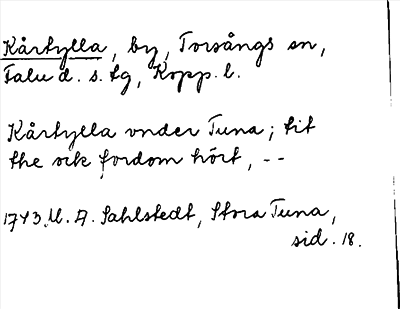 Kårtylla, by, Torsångs sn,
Falu d. s. tg, Kopp. l.
Kårtylla vnder Tuna; tit
the ock fordom hört, --
1743. U. A. Sahlstedt, Stora Tuna,
sid. 18.